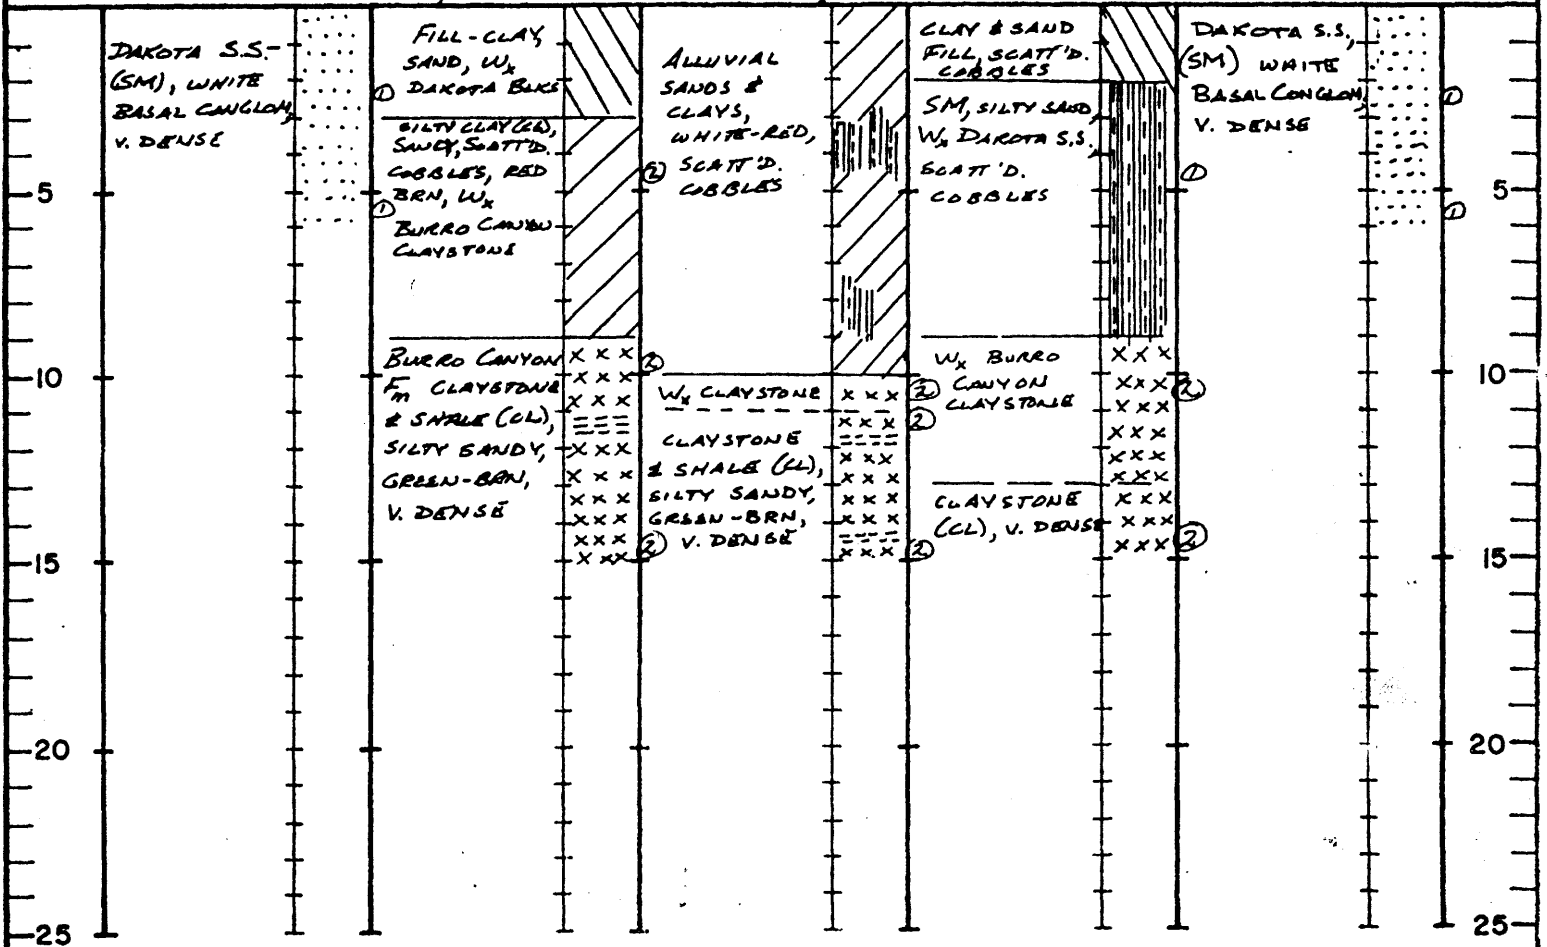 DAKOTA S.S.-
(SM), WHITE
BASAL CONGLOM,
V. DENSE
FILL-CLAY,
SAND, Wx
DAKOTA BLKS
①
SILTY CLAY (CL),
SANDY, SCATT'D.
COBBLES, RED
BRN, Wx
①
BURRO CANYON
CLAYSTONE
BURRO CANYON
Fm CLAYSTONE
& SHALE (CL),
SILTY SANDY,
GREEN-BRN,
V. DENSE
ALLUVIAL
SANDS &
CLAYS,
WHITE-RED,
② SCATT'D.
COBBLES
②
Wx CLAYSTONE
CLAYSTONE
& SHALE (CL),
SILTY SANDY,
GREEN-BRN,
② V. DENSE
CLAY & SAND
FILL, SCATT'D.
COBBLES
SM, SILTY SAND,
Wx DAKOTA S.S.,
SCATT'D.
COBBLES
Wx BURRO
② CANYON
CLAYSTONE
②
CLAYSTONE
(CL), V. DENSE
②
DAKOTA S.S.,
(SM) WHITE
BASAL CONGLOM,
V. DENSE
①
②
②
①
①
5
10
15
20
25
5
10
15
20
25